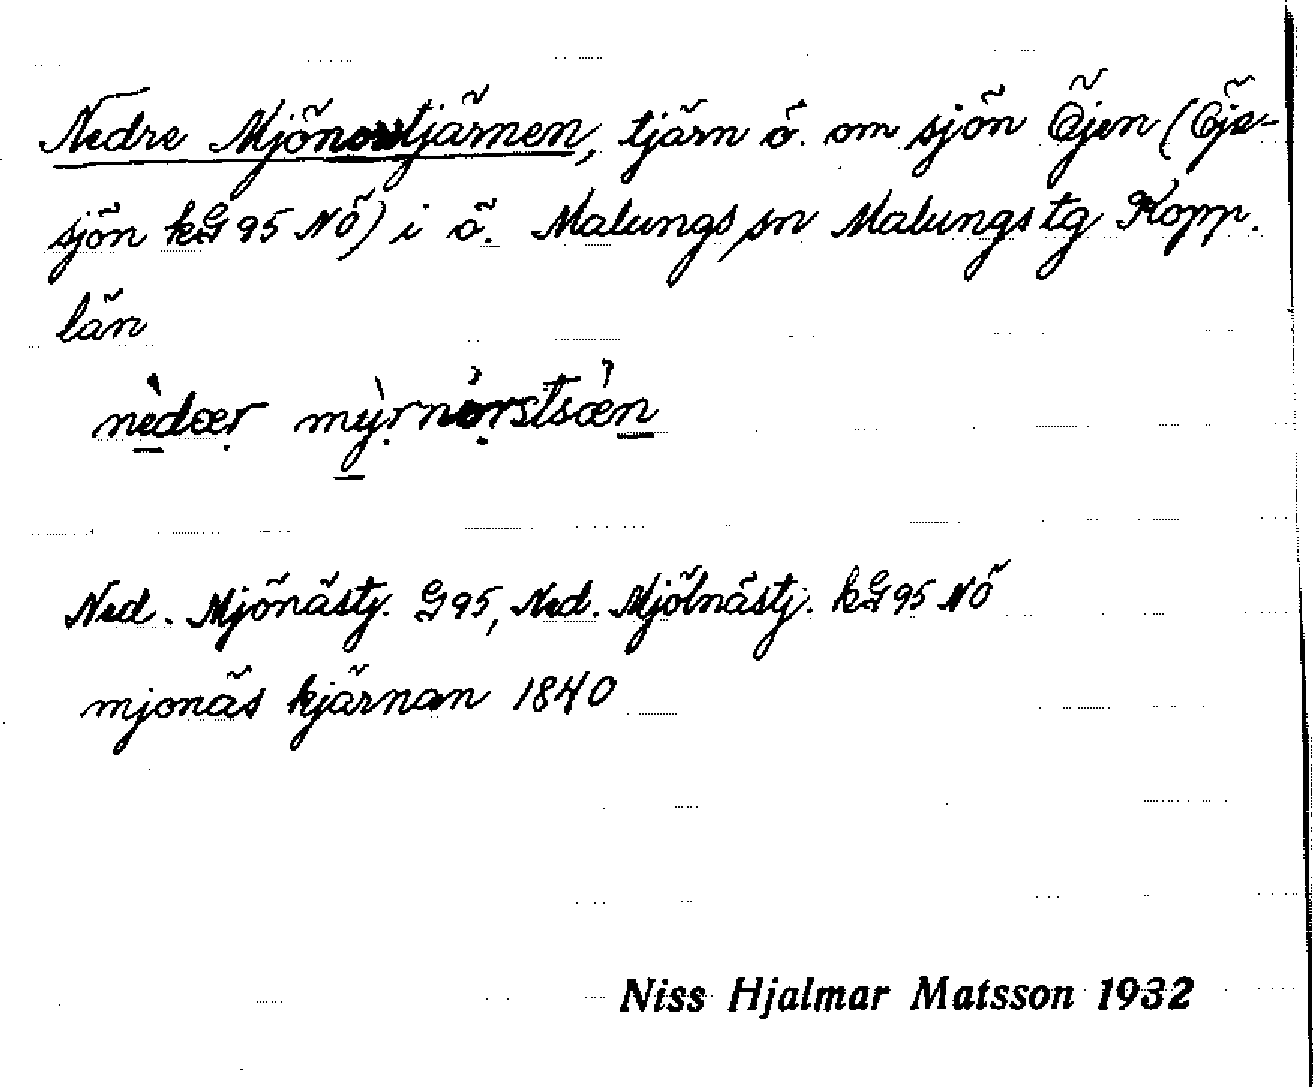 Nedre Mjönortjärnen, tjärn ö. om sjön Öjen (Öje-
sjön kG 95 NÖ) i ö. Malungs sn Malungs tg Kopp.
län
nèdær mỳrnòrstsæ̀n
Ned. Mjönästj. G95, Ned. Mjölnästj. kG 95 NÖ
mjonäs kjärnan 1840
Niss Hjalmar Matsson 1932